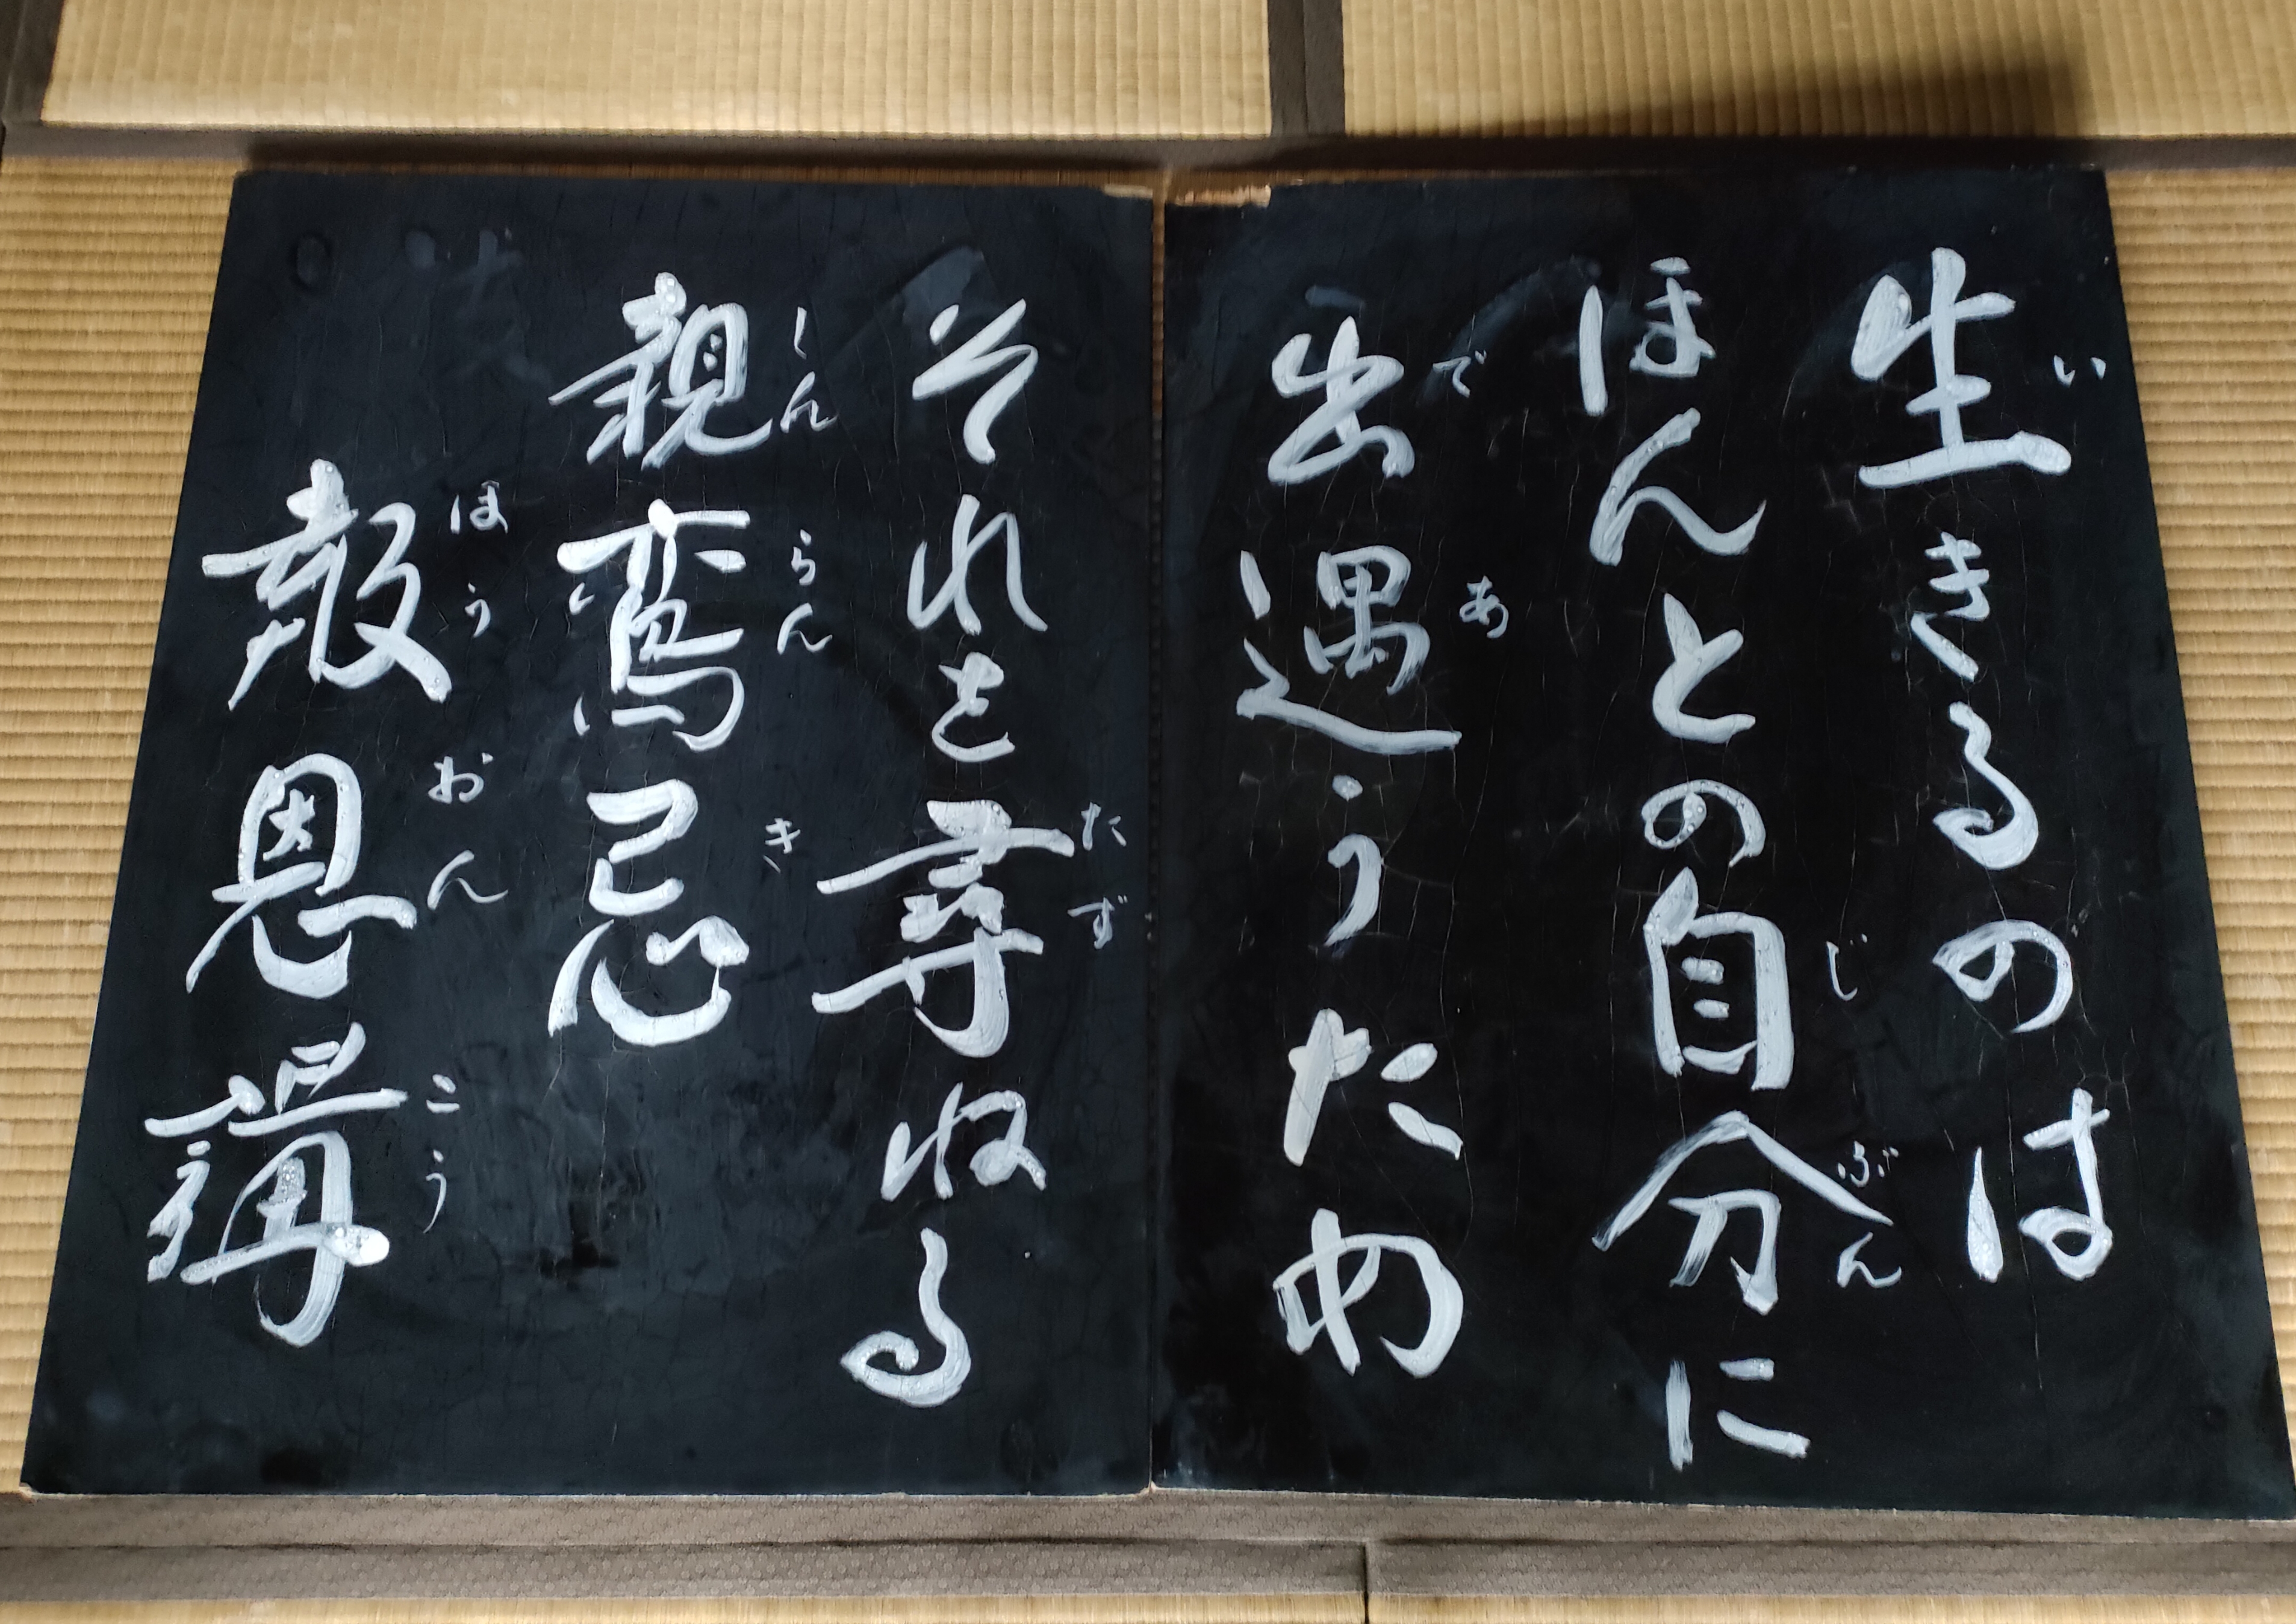 生きるのは
ほんとの自分に
出遇うため
それを尋ねる
親鸞忌
報恩講
い
じ
ぶん
で
あ
たず
しん
らん
き
ほう
おん
こう